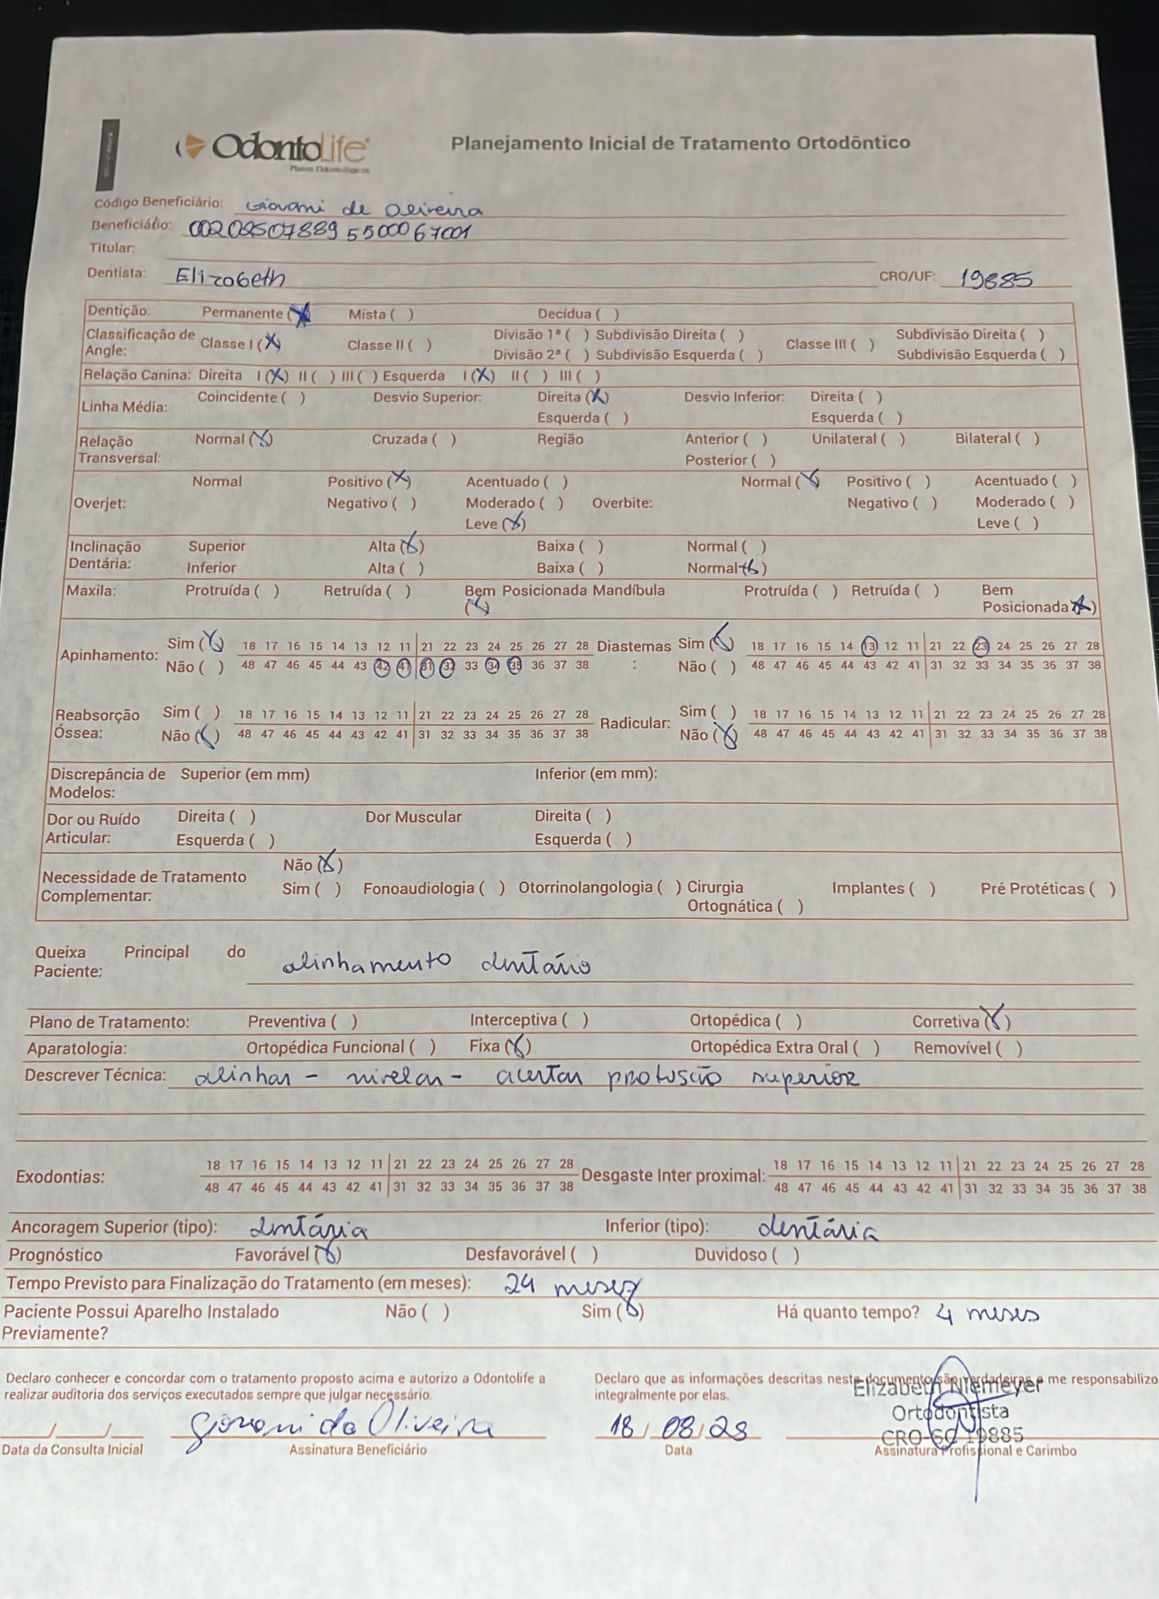 OdontoLife
Planos Odontológicos
Planejamento Inicial de Tratamento Ortodôntico
Código Beneficiário: Giovani de Oliveira
Beneficiário: 00208507889 5500067001
Titular:
Dentista: Elizabeth CRO/UF: 19885
Dentição: Permanente (X) Mista ( ) Decídua ( )
Classificação de Angle: Classe I (X) Classe II ( ) Divisão 1ª ( ) Subdivisão Direita ( ) Classe III ( ) Subdivisão Direita ( )
Divisão 2ª ( ) Subdivisão Esquerda ( ) Subdivisão Esquerda ( )
Relação Canina: Direita I (X) II ( ) III ( ) Esquerda I (X) II ( ) III ( )
Linha Média: Coincidente ( ) Desvio Superior: Direita (X) Desvio Inferior: Direita ( )
Esquerda ( ) Esquerda ( )
Relação Transversal: Normal (X) Cruzada ( ) Região Anterior ( ) Unilateral ( ) Bilateral ( )
Posterior ( )
Normal Positivo (X) Acentuado ( ) Normal (X) Positivo ( ) Acentuado ( )
Overjet: Negativo ( ) Moderado ( ) Overbite: Negativo ( ) Moderado ( )
Leve (X) Leve ( )
Inclinação Dentária: Superior Alta (X) Baixa ( ) Normal ( )
Inferior Alta ( ) Baixa ( ) Normal (X)
Maxila: Protruída ( ) Retruída ( ) Bem Posicionada (X) Mandíbula Protruída ( ) Retruída ( ) Bem Posicionada (X)
Apinhamento: Sim (X) 18 17 16 15 14 13 12 11 21 22 23 24 25 26 27 28 Diastemas : Sim (X) 18 17 16 15 14 13 12 11 21 22 23 24 25 26 27 28
Não ( ) 48 47 46 45 44 43 42 41 31 32 33 34 35 36 37 38 Não ( ) 48 47 46 45 44 43 42 41 31 32 33 34 35 36 37 38
Reabsorção Óssea: Sim ( ) 18 17 16 15 14 13 12 11 21 22 23 24 25 26 27 28 Radicular: Sim ( ) 18 17 16 15 14 13 12 11 21 22 23 24 25 26 27 28
Não (X) 48 47 46 45 44 43 42 41 31 32 33 34 35 36 37 38 Não (X) 48 47 46 45 44 43 42 41 31 32 33 34 35 36 37 38
Discrepância de Modelos: Superior (em mm) Inferior (em mm):
Dor ou Ruído Articular: Direita ( ) Dor Muscular Direita ( )
Esquerda ( ) Esquerda ( )
Necessidade de Tratamento Complementar: Não (X)
Sim ( ) Fonoaudiologia ( ) Otorrinolangologia ( ) Cirurgia Ortognática ( ) Implantes ( ) Pré Protéticas ( )
Queixa Principal do Paciente: alinhamento dentário
Plano de Tratamento: Preventiva ( ) Interceptiva ( ) Ortopédica ( ) Corretiva (X)
Aparatologia: Ortopédica Funcional ( ) Fixa (X) Ortopédica Extra Oral ( ) Removível ( )
Descrever Técnica: alinhar - nivelar - acertar protusão superior
Exodontias: 18 17 16 15 14 13 12 11 21 22 23 24 25 26 27 28 Desgaste Inter proximal: 18 17 16 15 14 13 12 11 21 22 23 24 25 26 27 28
48 47 46 45 44 43 42 41 31 32 33 34 35 36 37 38 48 47 46 45 44 43 42 41 31 32 33 34 35 36 37 38
Ancoragem Superior (tipo): dentária Inferior (tipo): dentária
Prognóstico Favorável (X) Desfavorável ( ) Duvidoso ( )
Tempo Previsto para Finalização do Tratamento (em meses): 24 meses
Paciente Possui Aparelho Instalado Previamente? Não ( ) Sim (X) Há quanto tempo? 4 meses
Declaro conhecer e concordar com o tratamento proposto acima e autorizo a Odontolife a
realizar auditoria dos serviços executados sempre que julgar necessário.
Declaro que as informações descritas neste documento são verdadeiras e me responsabilizo
integralmente por elas.
Elizabeth Niemeyer
Ortodontista
CRO-SC 19885
__/__/__ Giovani de Oliveira 18/08/23
Data da Consulta Inicial Assinatura Beneficiário Data Assinatura Profissional e Carimbo